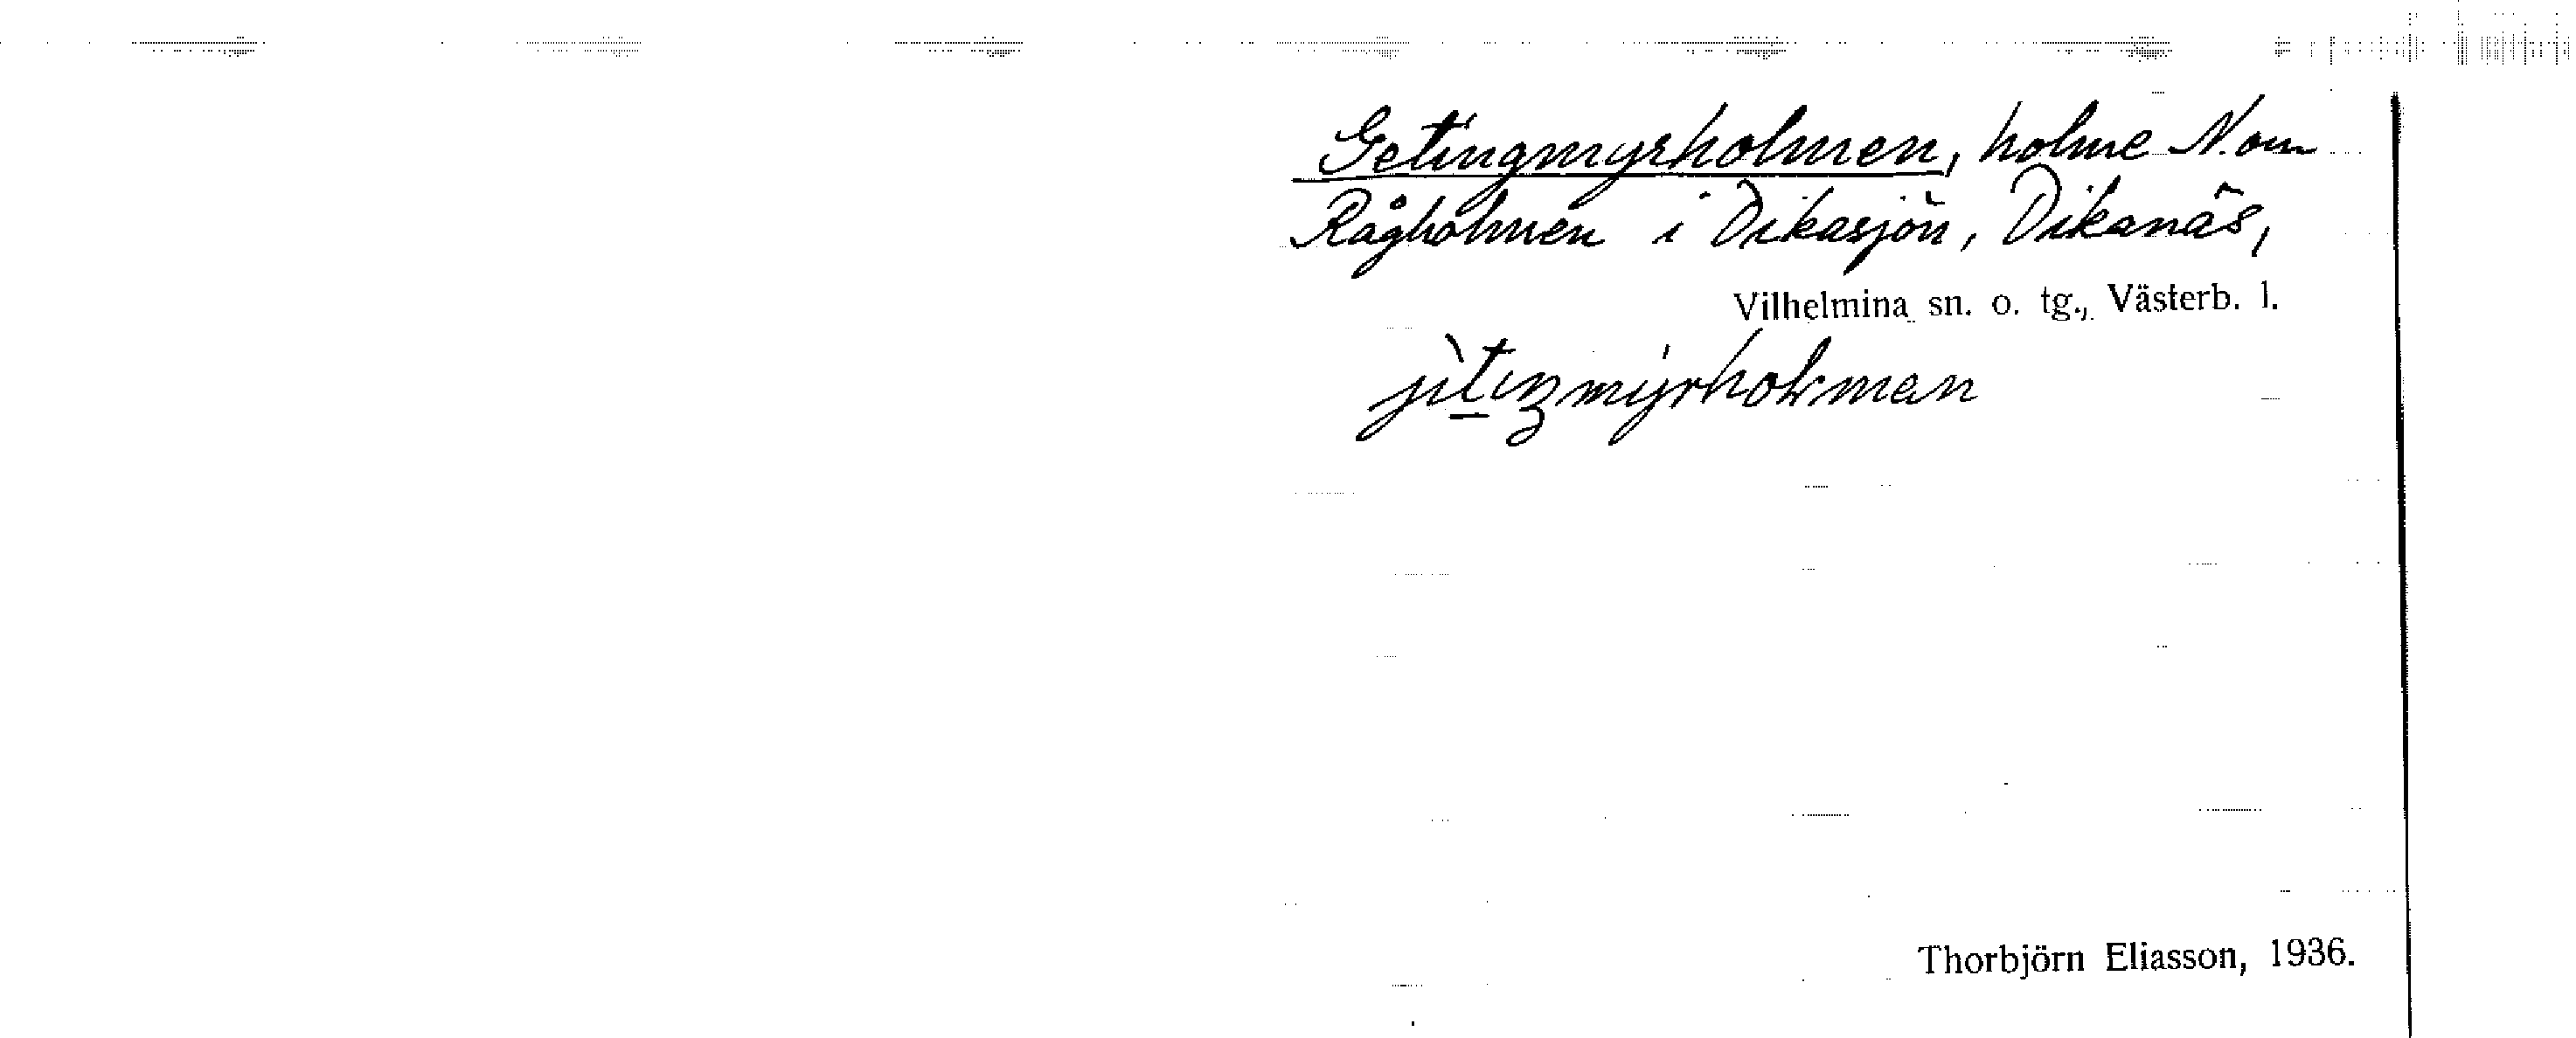 Getingmyrholmen, holme N. om
Rågholmen i Dikasjön, Dikanäs,
Vilhelmina sn. o. tg., Västerb. l.
Thorbjörn Eliasson, 1936.